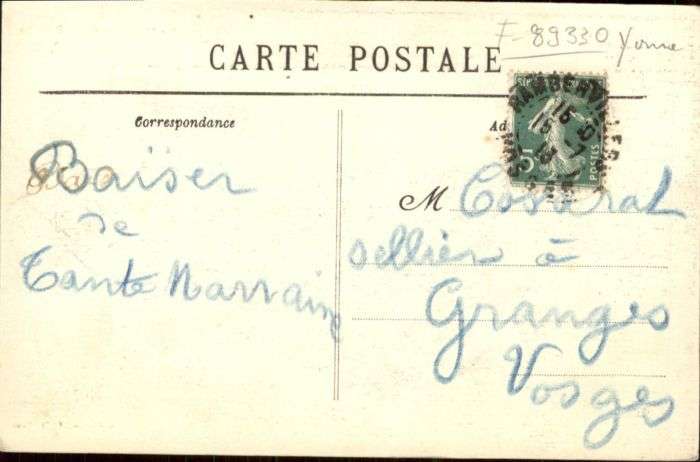 F-89330 Yonne
CARTE POSTALE
Correspondance
Ad
RAMBERVILLERS
15 10
15 - 7
VOSGES
5c
POSTES
Baiser
de
Tante Marraine
M Cosserat
sellier à
Granges
Vosges